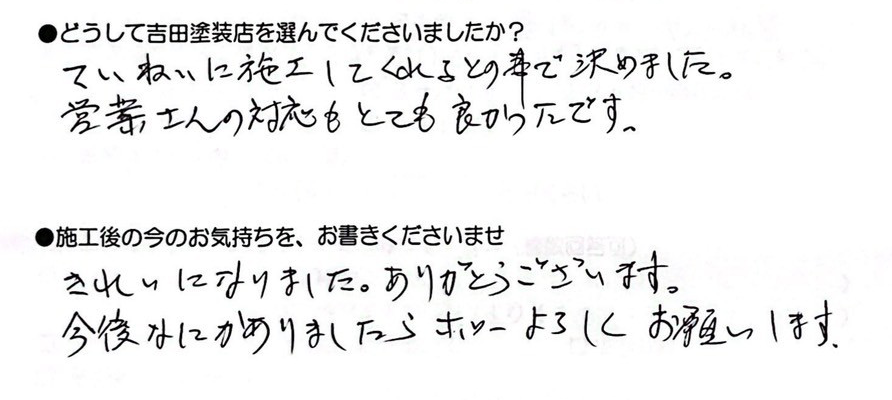 ●どうして吉田塗装店を選んでくださいましたか？
ていねいに施工してくれるとの事で決めました。
営業さんの対応もとても良かったです。
●施工後の今のお気持ちを、お書きくださいませ
きれいになりました。ありがとうございます。
今後なにかありましたら フォローよろしく お願いします。